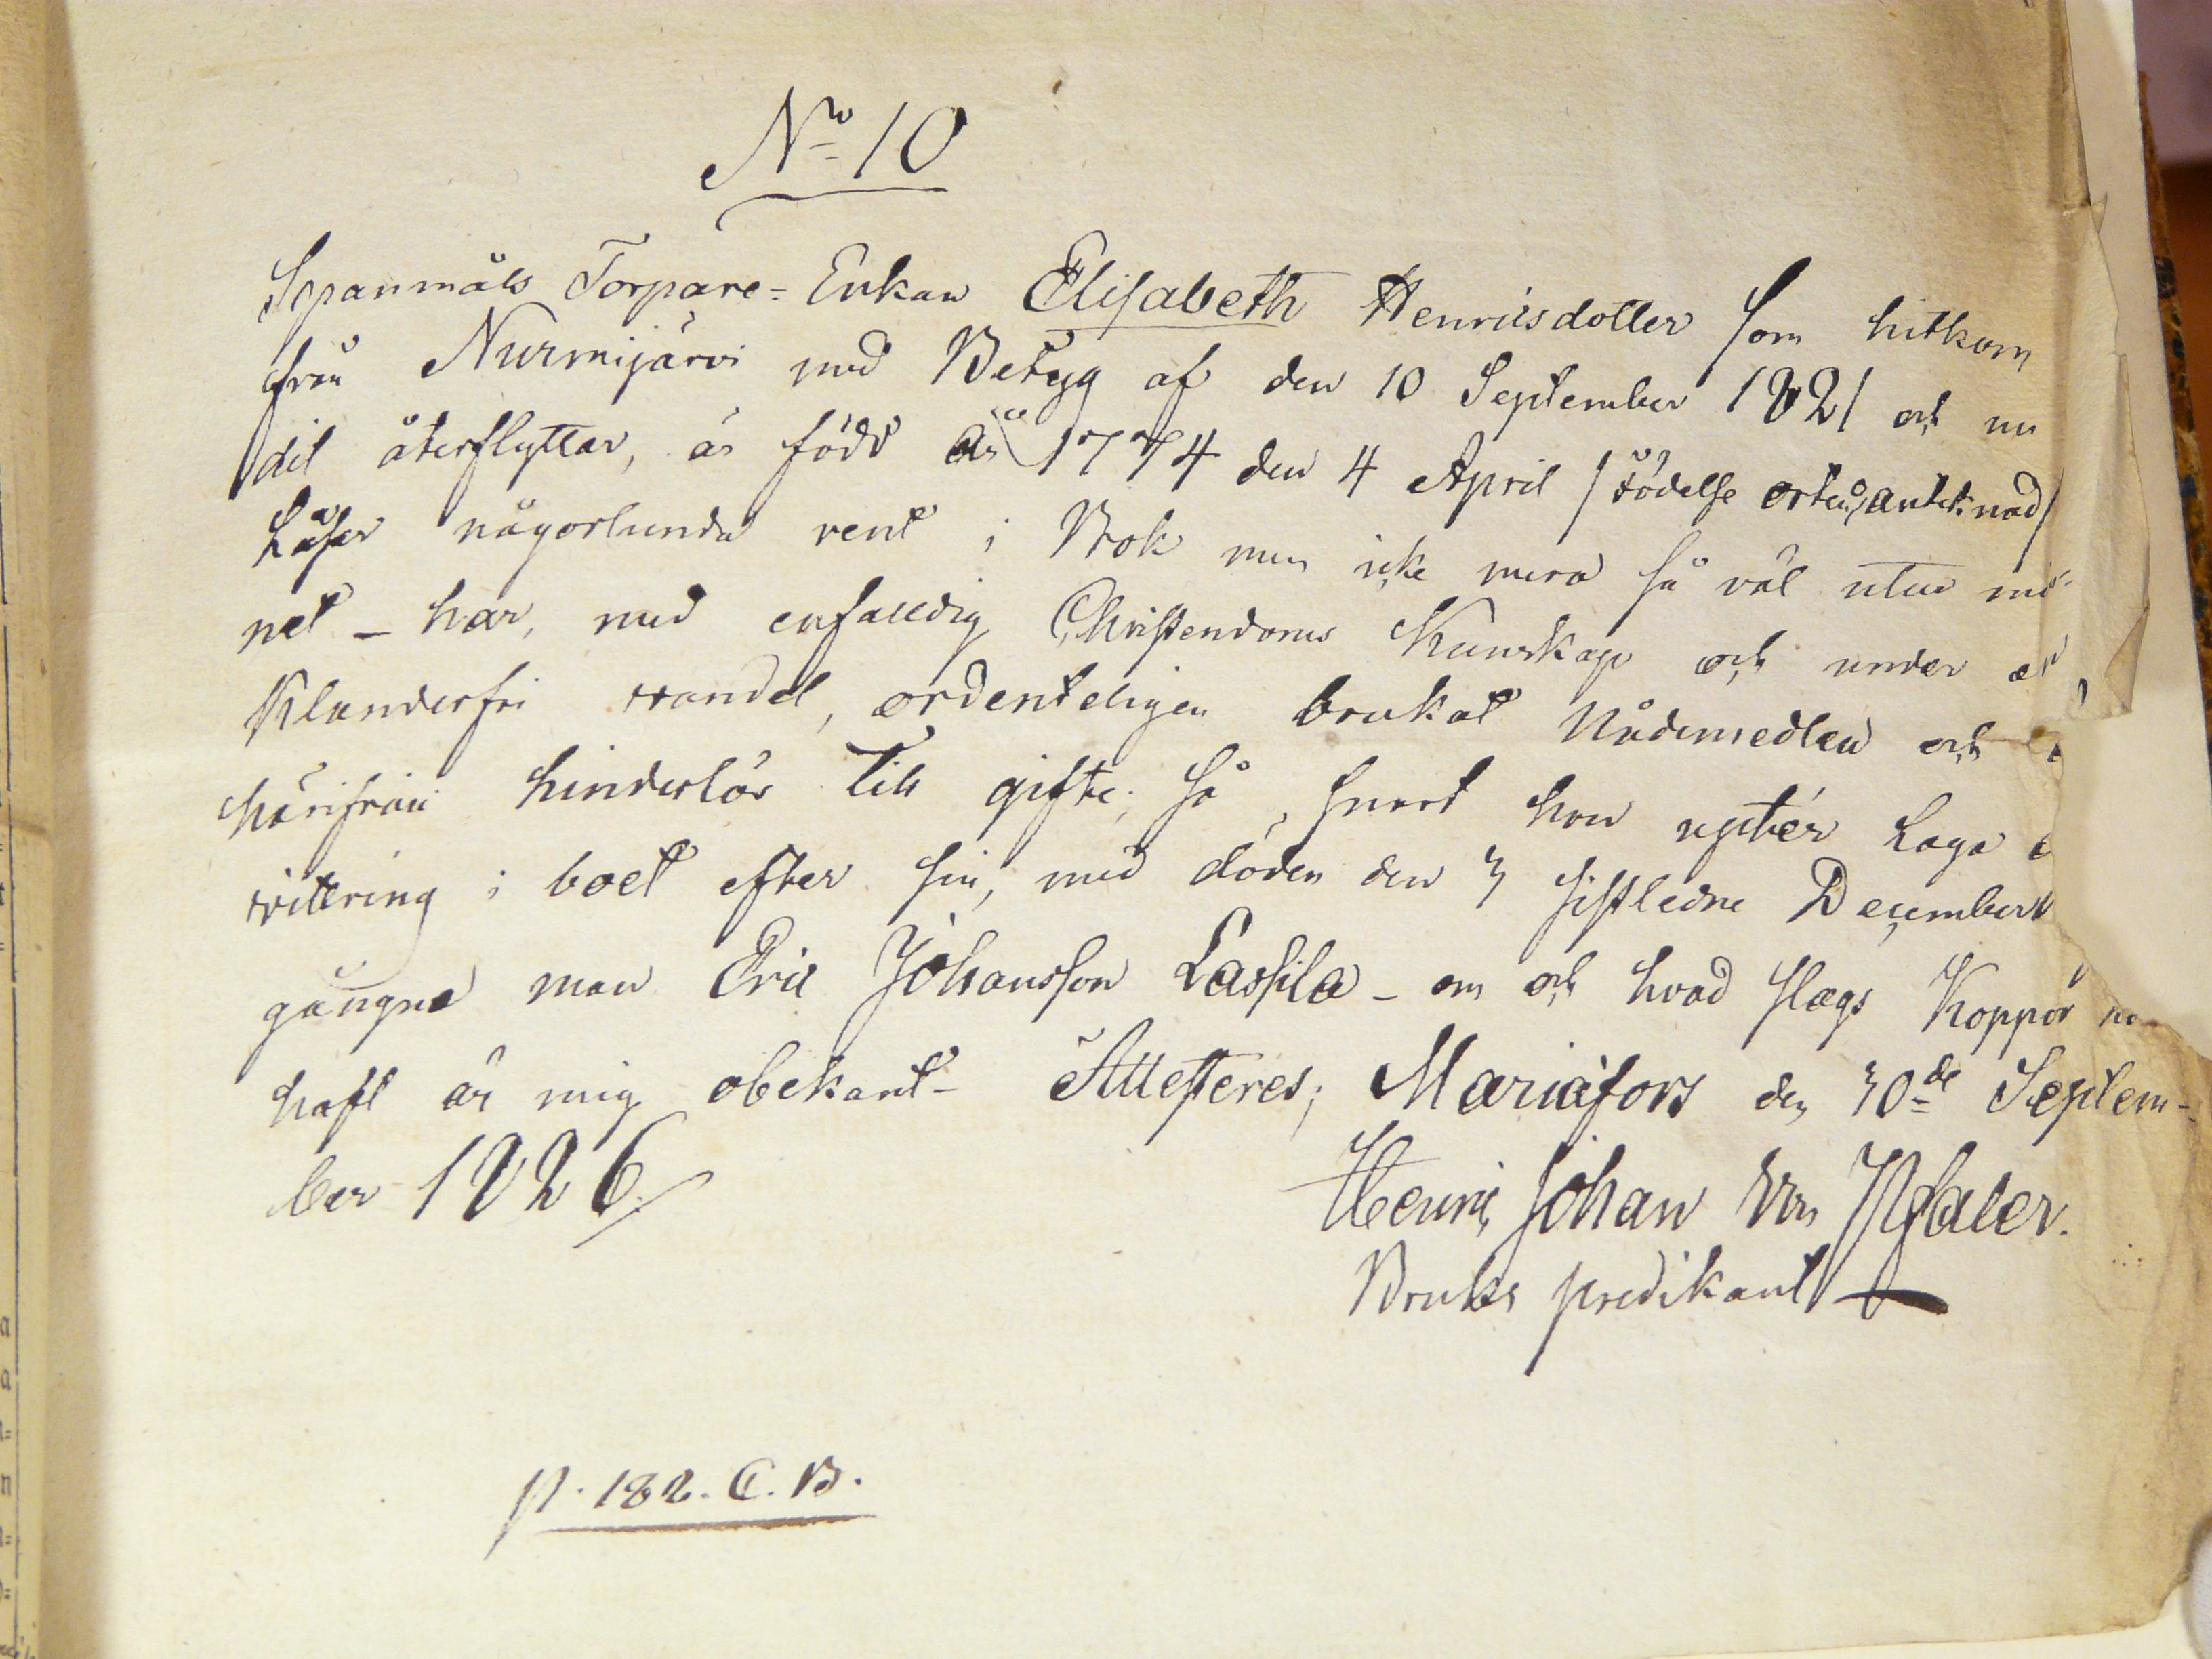 No 10
Spanmåls Torpare-Enkan Elisabeth Henricsdotter som hitkom
från Nurmijärvi med Betyg af den 10 September 1821 och nu
dit återflyttar, är född år 1774 den 4 April /födelse orten anteknad/
Läser någorlunda rent i Bok men icke mera så väl utur min-
net – har, med enfaldig Christendoms Kunskap och under
Klanderfri vandel, ordenteligen brukat Nådemedlen och
härifrån hinderlös till gifte; så snart hon upter Laga
vittring i boet efter sin, med döden den 3 sistledne December
gångna man Eric Johansson Lassila – om och hvad slags Koppor
haft är mig obekant – Attesteres; Mariæfors den 30de Septem-
ber 1826
Henric Johan von Pfaler.
Bruks predikant
p. 182. C. B.